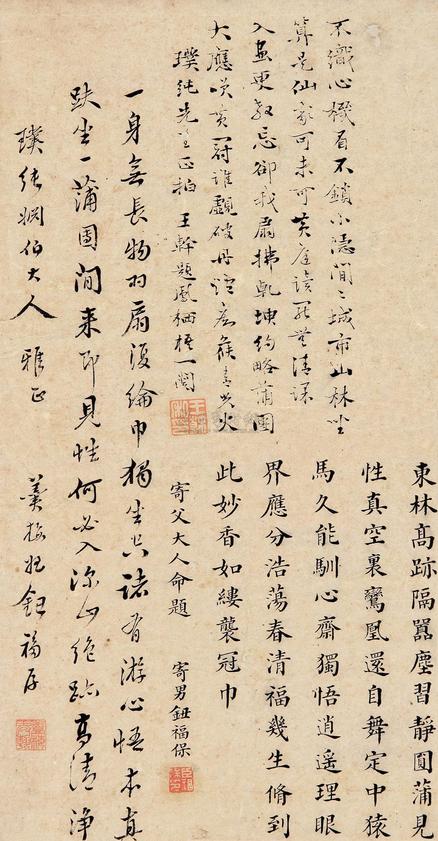 東林高跡隔囂塵習靜圓蒲見
性真空裏鸞鳳還自舞定中猿
馬久能馴心齋獨悟逍遥理眼
界應分浩蕩春清福幾生脩到
此妙香如縷襲冠巾
寄父大人命題 寄男鈕福保
不識心機看不鎖小隱閒閒城市山林坐
算是仙家可未可黃庭讀罷無清課
入畫更教忘卻我扇拂乾坤約略蒲團
大應笑黃冠誰覷破丹
璞純先生正拍 王榦題鳳栖梧一闋
一身無長物羽扇復綸巾獨坐空諸有游心悟本真
趺坐一蒲團閒来即見性何必入深山絶跡高清淨
璞純姻伯大人 雅正
姜 鈕福厚